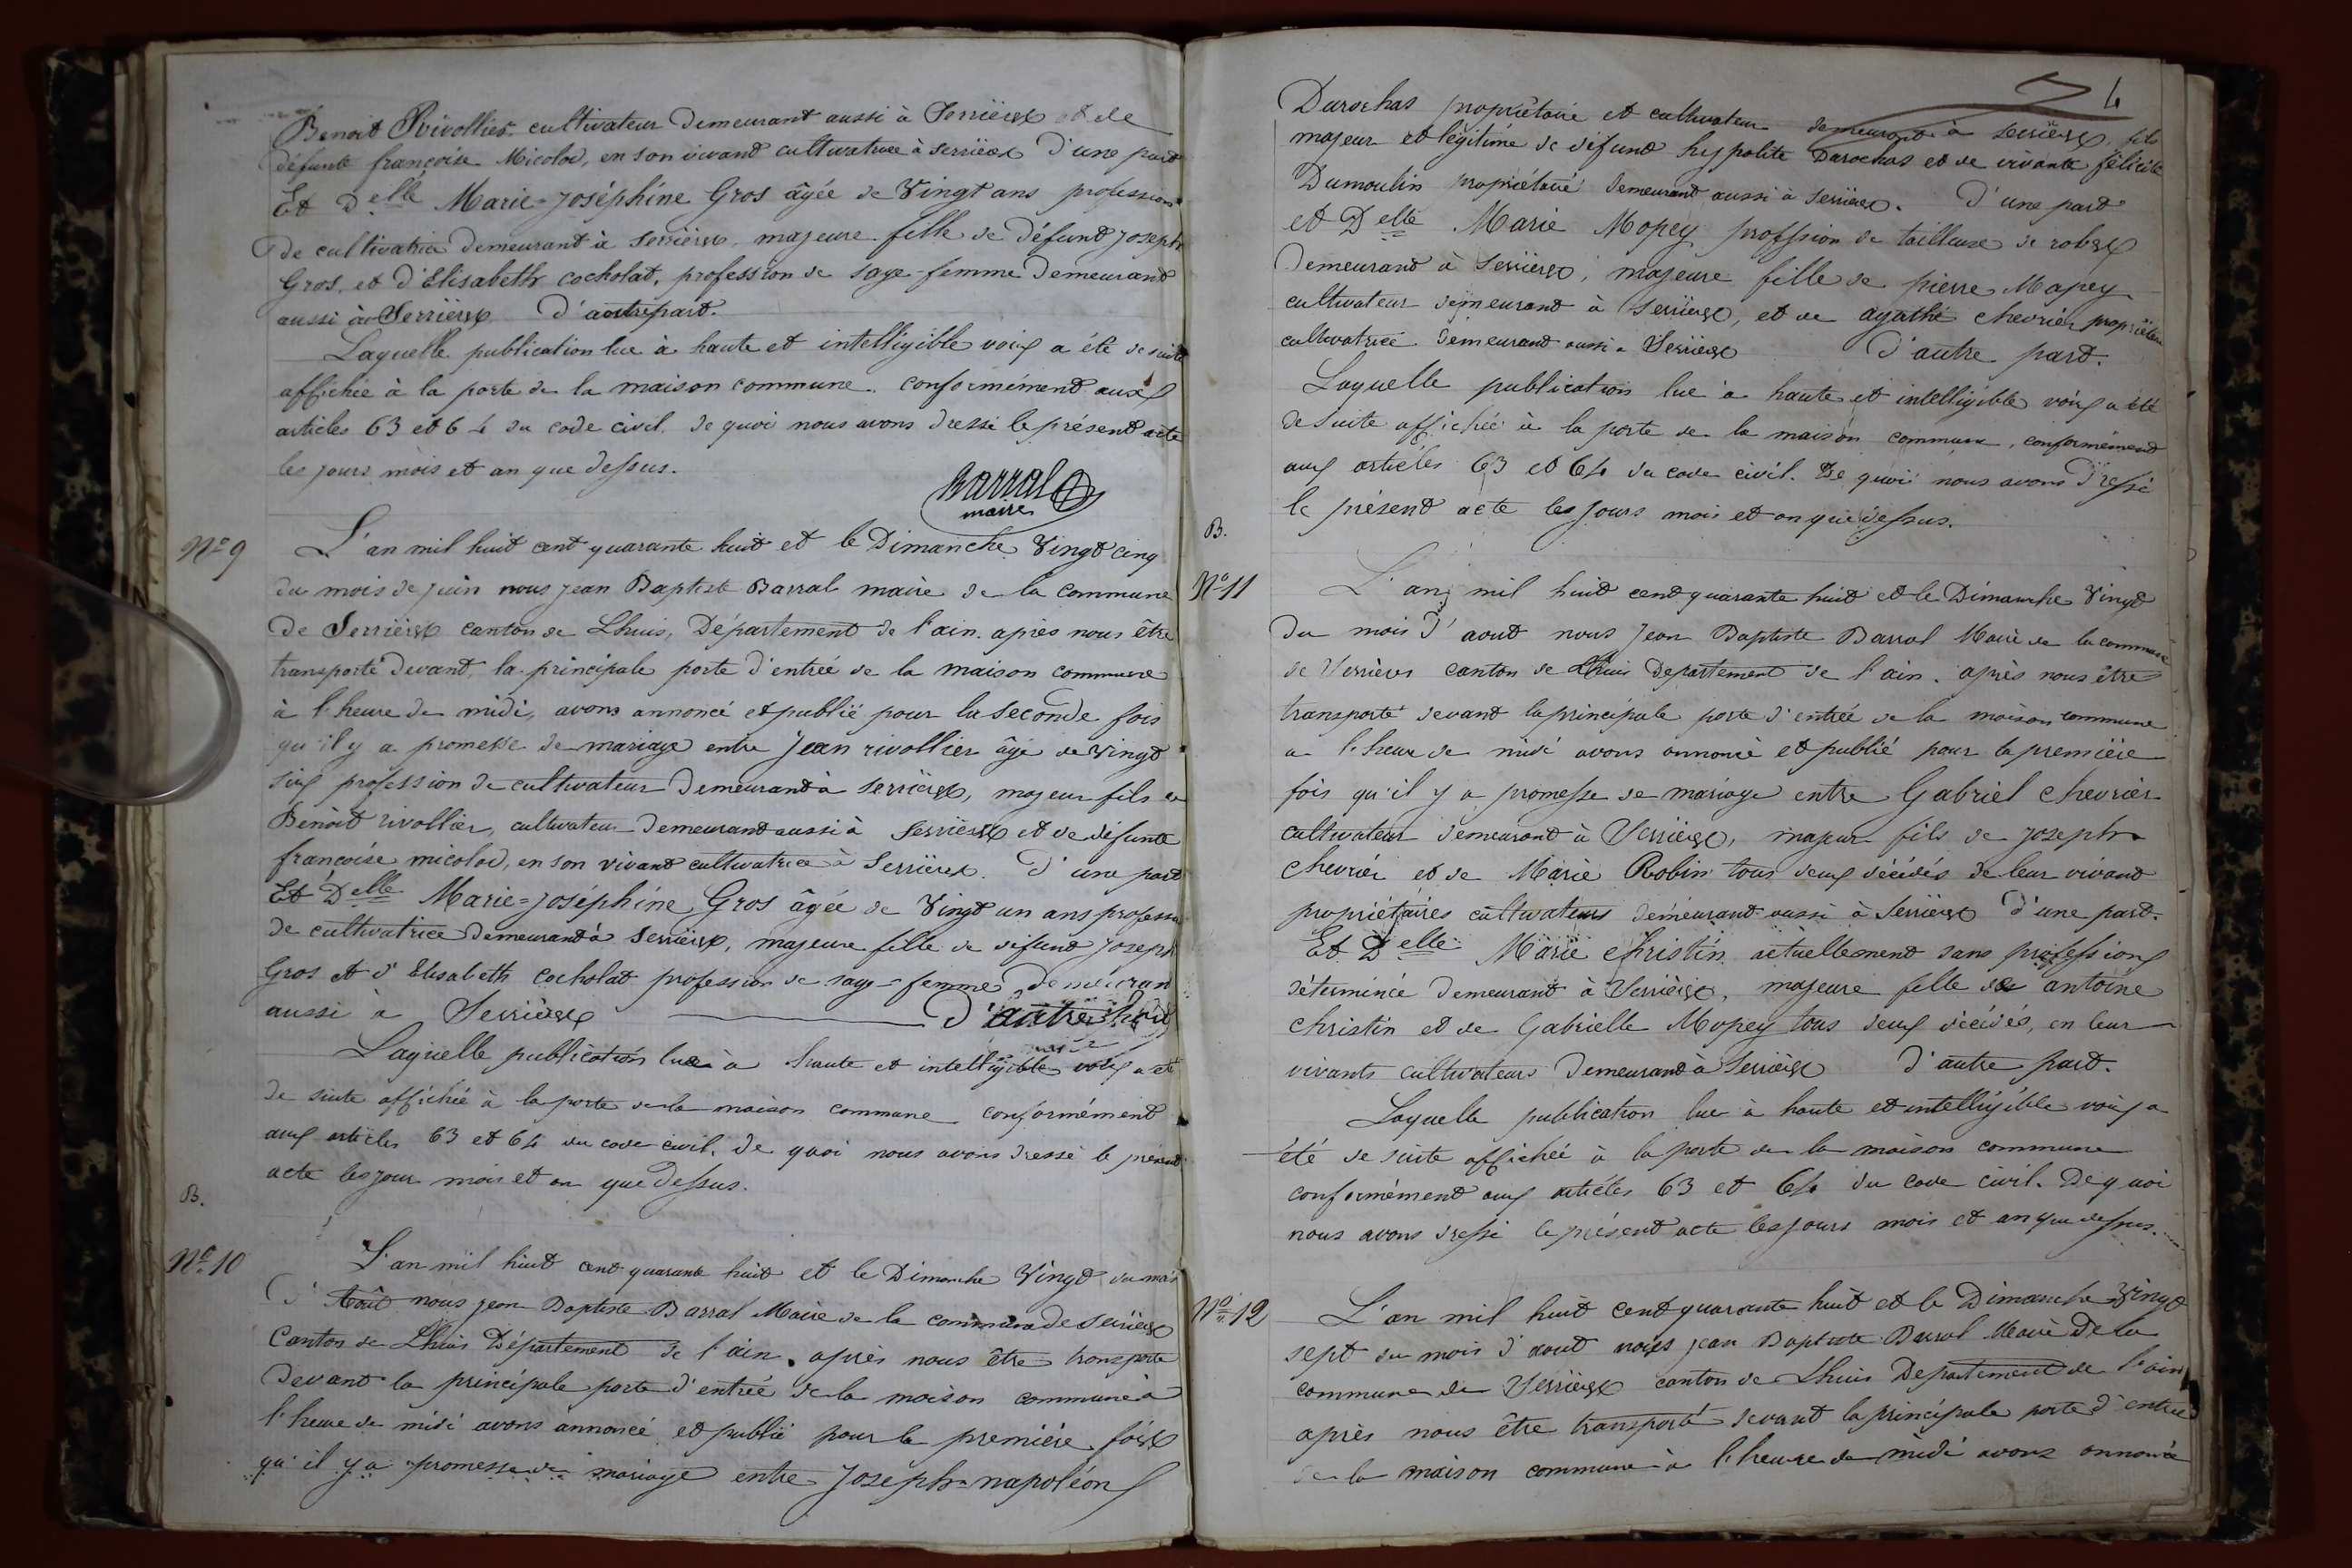 Benoit Rivollier cultivateur demeurant aussi à Serrières et de
défunte françoise Micolod, en son vivant cultivatrice à serrières D'une part
Et Delle Marie=Joséphine Gros âgée de Vingt ans profession
de cultivatrice demeurant à serrières, majeure fille de défunt Joseph
Gros, et d'Elisabeth cocholat, profession de sage-femme demeurant
aussi à Serrières D'autrepart.
Laquelle publication lue à haute et intelligible voix a été de suite
affichée à la porte de la maison commune. conformément aux
articles 63 et 64 du code civil. de quoi nous avons dressé le présent acte
les jours mois et an que dessus.
Barral
maire
No 9
L'an mil huit cent quarante huit et le Dimanche Vingt cinq
du mois de juin nous jean Baptiste Barral maire de la commune
de Serrières canton de Lhuis, Département de l'ain. après nous être
transporté devant la principale porte d'entrée de la maison commune
à l'heure de midi, avons annoncé et publié pour la seconde fois
qu'il y a promesse de mariage entre Jean rivollier âgé de vingt
six profession de cultivateur demeurant à serrières, majeur fils de
Benoit rivollier, cultivateur demeurant aussi à serrières et de défunte
françoise micolod, en son vivant cultivatrice à Serrières. D'une part
Et Delle Marie=Joséphine Gros âgée de Vingt un ans profession
de cultivatrice demeurant à serrières, majeure fille de défunt Joseph
Gros et d'Elisabeth cocholat profession de sage=femme demeurant
aussi à Serrières D'autre part
Laquelle publication lue à haute et intelligible voix a été
de suite affichée à la porte de la maison commune conformément
aux articles 63 et 64 du code civil. de quoi nous avons dressé le présent
acte les jour mois et an que dessus.
B.
No 10
L'an mil huit cent quarante huit et le Dimanche Vingt du mois
d'Août nous jean Baptiste Barral Maire de la commune de serrières
Canton de Lhuis Département de l'ain. après nous être transporté
devant la principale porte d'entrée de la maison commune à
l'heure de midi avons annoncé et publié pour la première fois
qu'il y a promesse de mariage entre Joseph-napoléon
4
Darochas propriétaire et cultivateur demeurant à serrières, fils
majeur et légitime de défunt hypolite Darochas et de vivante félicité
Dumoulin propriétaire demeurant aussi à serrières. D'une part
et Delle Marie Mopey profession de tailleuse de robes
demeurant à Serrières, majeure fille de pierre Mopey
cultivateur demeurant à Serrières, et de agathe chevrier propriétaire
cultivatrice demeurant aussi à Serrières D'autre part.
Laquelle publication lue à haute et intelligible voix a été
de suite affichée à la porte de la maison commune, conformément
aux articles 63 et 64 du code civil. De quoi nous avons dressé
le présent acte les jours mois et an que dessus.
B.
No 11
L'an mil huit cent quarante huit et le Dimanche Vingt
du mois d'aout nous Jean Baptiste Barral Maire de la commune
de Serrières canton de Lhuis Departement de l'ain. après nous être
transporté devant la principale porte d'entrée de la maison commune
a l'heure de midi avons annoncé et publié pour la première
fois qu'il y a promesse de mariage entre Gabriel chevrier
cultivateur demeurant à Serrières, majeur fils de joseph
chevrier et de Marie Robin tous deux décédés de leur vivant
propriétaires cultivateurs demeurant aussi à Serrières D'une part.
Et Delle Marie christin actuellement sans profession
déterminée demeurant à Serrières, majeure fille de antoine
christin et de Gabrielle Mopey tous deux décédés, en leur
vivants cultivateurs demeurant à Serrières D'autre part.
Laquelle publication lue à haute et intelligible voix a
été de suite affichée à la porte de la maison commune
conformément aux articles 63 et 64 du code civil. De quoi
nous avons dressé le présent acte les jours mois et an que dessus.
No 12
L'an mil huit cent quarante huit et le Dimanche Vingt
sept du mois d'aout nous jean Baptiste Barral Maire de la
commune de Serrières canton de Lhuis Departement de l'ain
après nous être transporté devant la principale porte d'entrée
de la maison commune à l'heure de midi avons annoncé